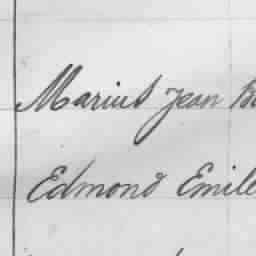 Marius Jean
Edmond Emile